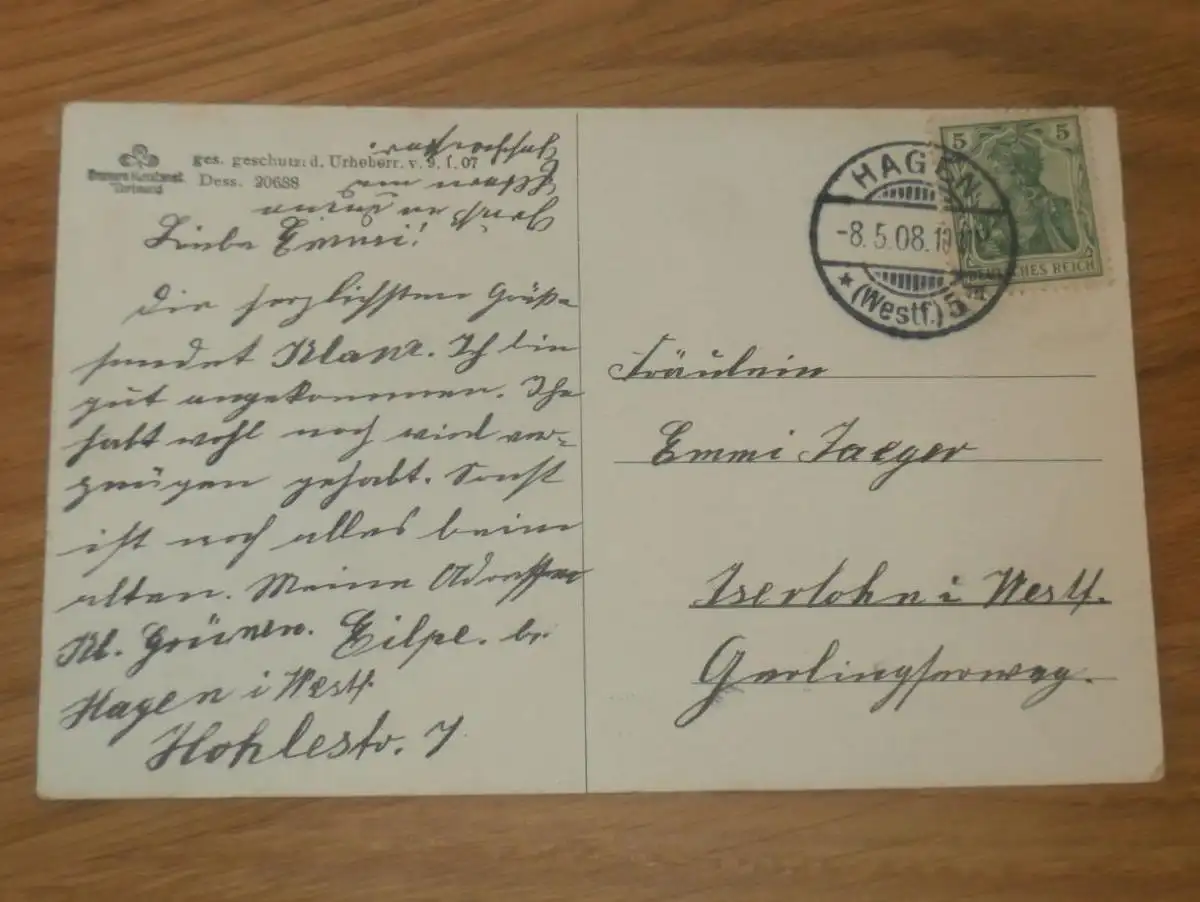 ges. geschutz: d. Urheberr. v. 9. 1. 07
Dess. 20688
Liebe Emmi!
Die herzlichsten Grüße
sendet Klara. Ich bin
gut angekommen. Ihr
habt wohl noch viel ver-
gnügen gehabt. Sonst
ist noch alles beim
alten. Meine Adresse
Kl. Grünen. Eilpe. b.
Hagen i Westf.
Hohlestr. 7
HAGEN
-8.5.08.
* (Westf.) 5
5 5
DEUTSCHES REICH
Fräulein
Emmi Jaeger
Iserlohn i Westf.
Gerlingserweg.